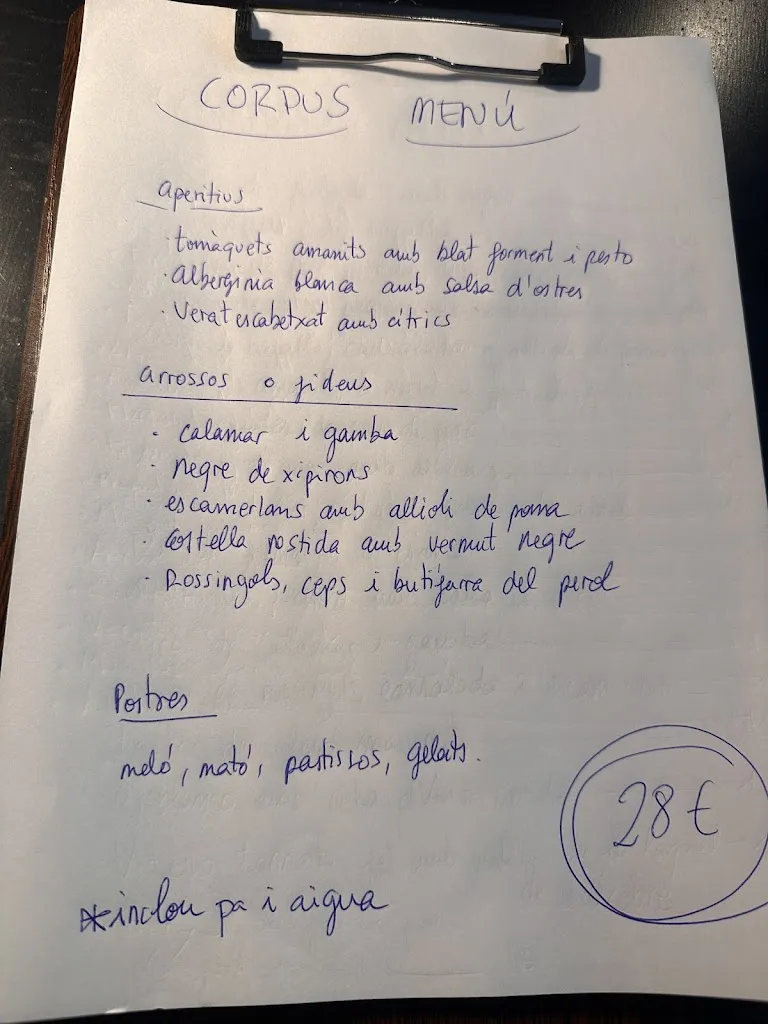 CORPUS MENÚ
Aperitius
· tomàquets amanits amb blat forment i pesto
· Albergínia blanca amb salsa d'ostres
· Verat escabetxat amb cítrics
Arrossos o fideus
· calamar i gamba
· negre de xipirons
· escamerlans amb allioli de poma
· Costella rostida amb vermut negre
· Rossinyols, ceps i butifarra del perol
Postres
meló, mató, pastissos, gelats.
28 €
*inclou pa i aigua